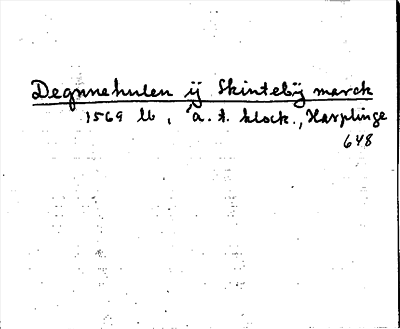 Degnnehulen ij Skintebÿ marck
1569 lb, a. t. klock., Harplinge
648